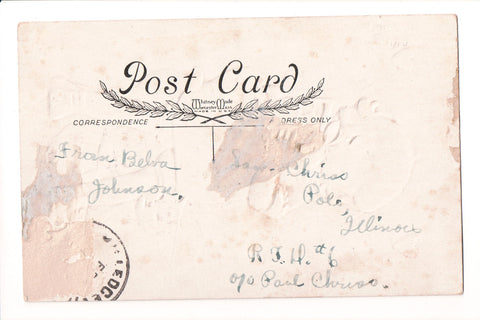 Post Card
Whitney Made
Worcester Mass
CORRESPONDENCE
DRESS ONLY
From Belva
Johnson.
Chriso
Polo,
Illinois
R.F.D. #6
c/o Paul Chriso.
LEDGE